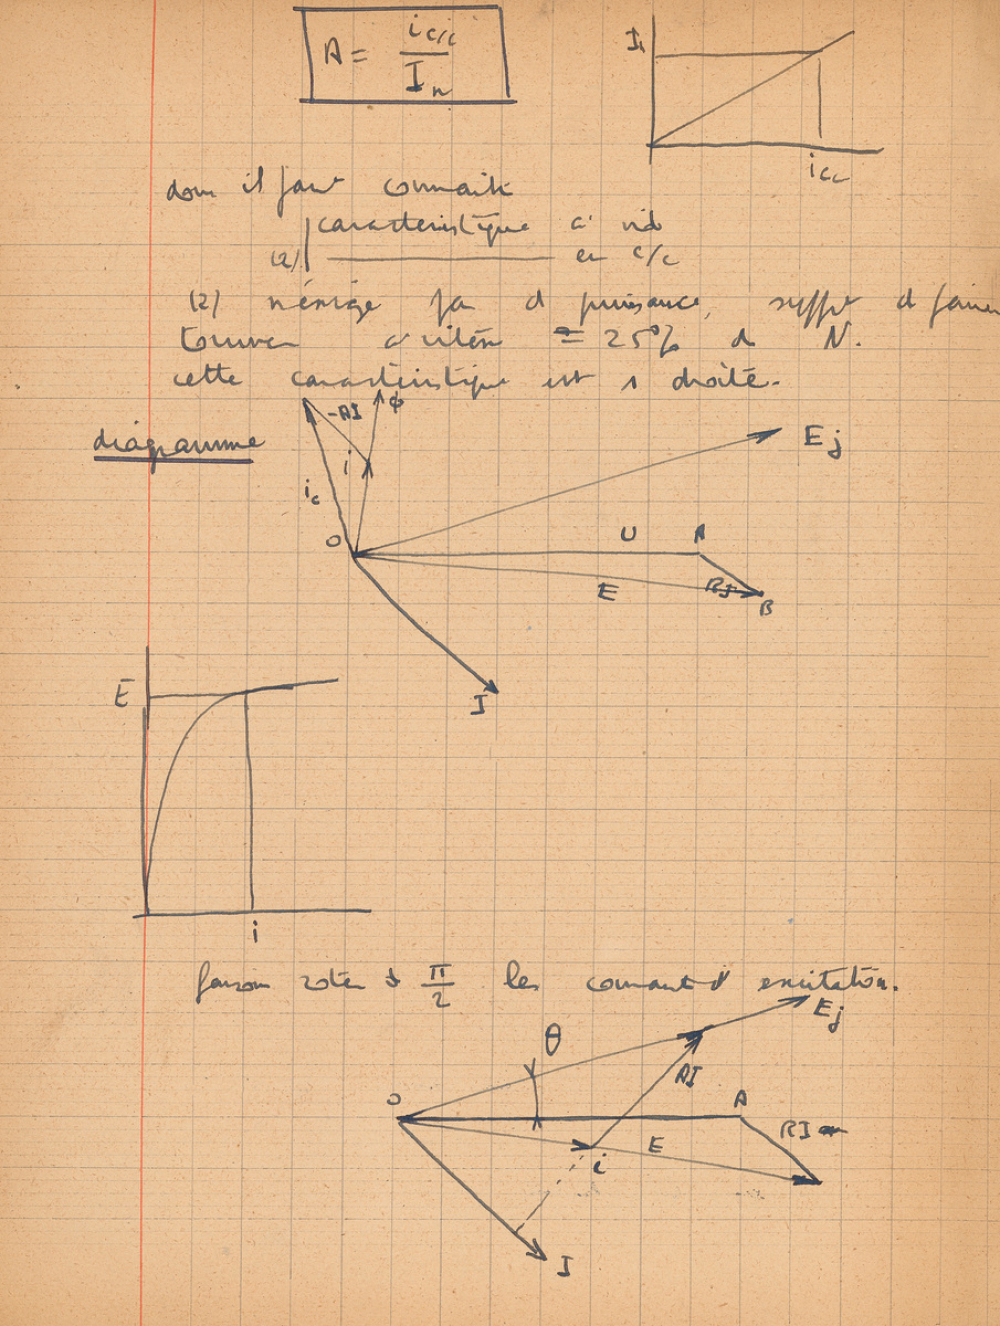 A = i c/c / I n
I n
i cc
donc il faut connaitre
caracteristique à vide
(2) ——— en c/c
(2) n'exige pas de puissance, suffit de faire
tourner à vitesse ≅ 25% de N.
cette caractéristique est 1 droite.
diagramme
-AI ϕ
i
i c
Ej
O U A
E RI B
I
E
i
faisons roter de π/2 les courants d'excitation.
Ej
θ
AI
O A
RI
E
i
I